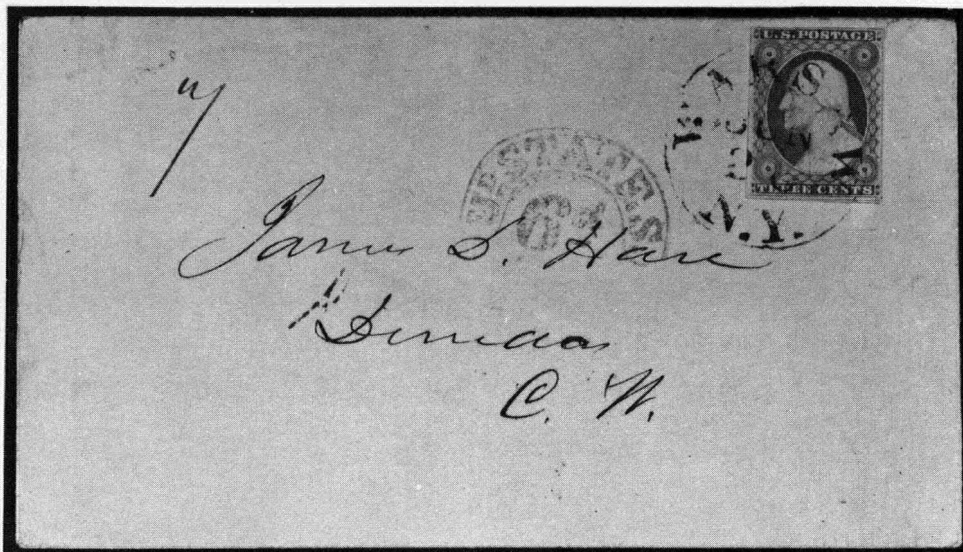 U.S. POSTAGE
THREE CENTS
N.Y.
STATES
6d
James S. Hare
Dundas
C. W.